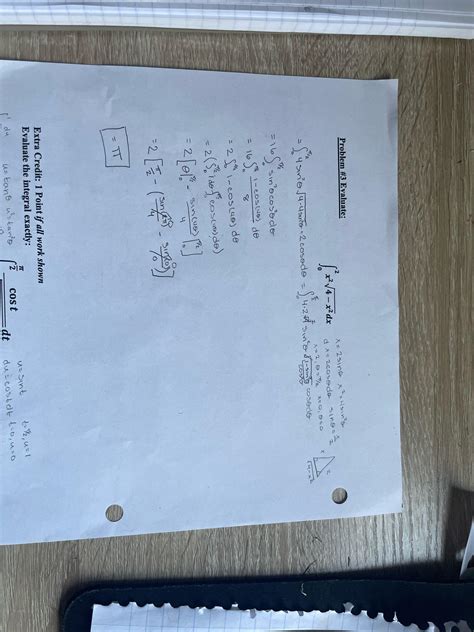 Problem #3 Evaluate:
∫₀² x²√4 − x² dx
x = 2sinθ x² = 4sin²θ
dx = 2cosθdθ sinθ = x/2
x=2, θ=π/2 x=0, θ=0
= ∫₀^π/2 4sin²θ √4-4sin²θ · 2cosθdθ = ∫₀^π/2 4·2·2 sin²θ √1-sin²θ cosθdθ
= 16 ∫₀^π/2 sin²θcos²θdθ
= 16 ∫₀^π/2 1-cos(4θ)/8 dθ
= 2 ∫₀^π/2 1-cos(4θ) dθ
= 2 (∫₀^π/2 1dθ - ∫ cos(4θ)dθ)
= 2 [θ|₀^π/2 - sin(4θ)/4 |₀^π/2]
= 2 [π/2 - (
= π
Extra Credit: 1 Point if all work shown
Evaluate the integral exactly:
∫ π/2 cos t dt
u=sint t=π/2, u=1
du=costdt t=0, u=0
du u=tanθ u²=tan²θ